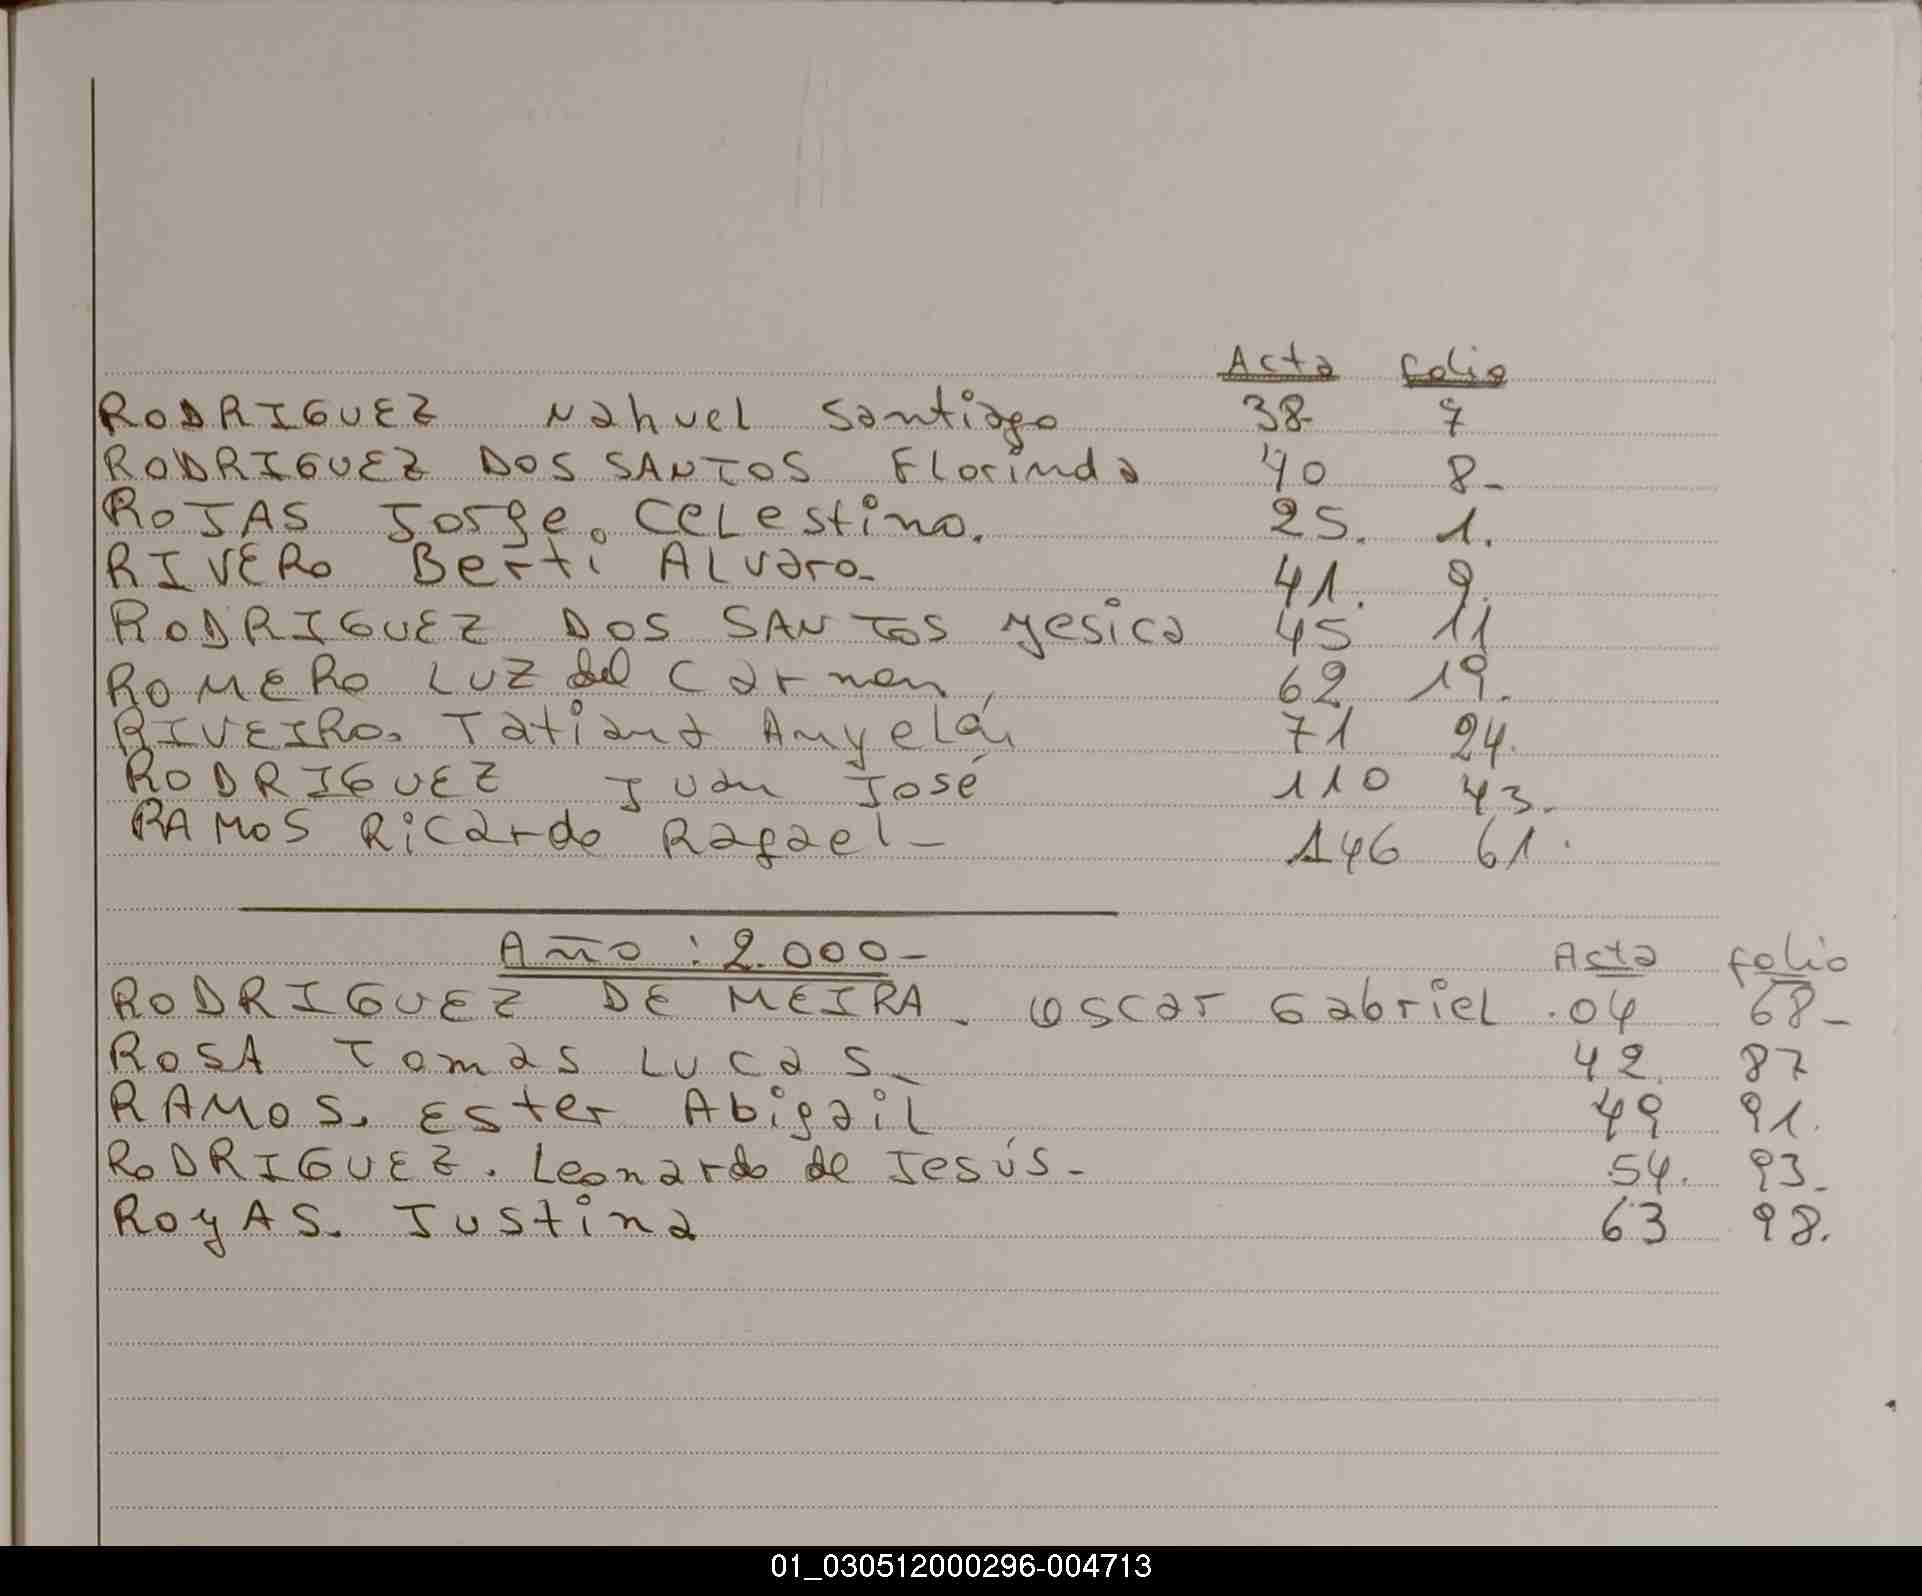 Acta folio
RODRIGUEZ Nahuel Santiago 38- 7
RODRIGUEZ DOS SANTOS Florinda 40 8-
ROJAS Jorge. Celestino. 25. 1.
RIVERO Berti Alvaro- 41. 9.
RODRIGUEZ DOS SANTOS Yesica 45 11
ROMERO Luz del Carmen, 62 19.
RIVEIRO. Tatiana Anyelá, 71 24.
RODRIGUEZ Juan José 110 43-
RAMOS Ricardo Rafael- 146 61.
Año : 2.000- Acta folio
RODRIGUEZ DE MEIRA. Oscar Gabriel .04 68-
ROSA Tomas Lucas- 42. 87
RAMOS. Ester Abigail 49 91.
RODRIGUEZ. Leonardo de Jesús- 54. 93-
ROYAS. Justina 63 98.
01_030512000296-004713